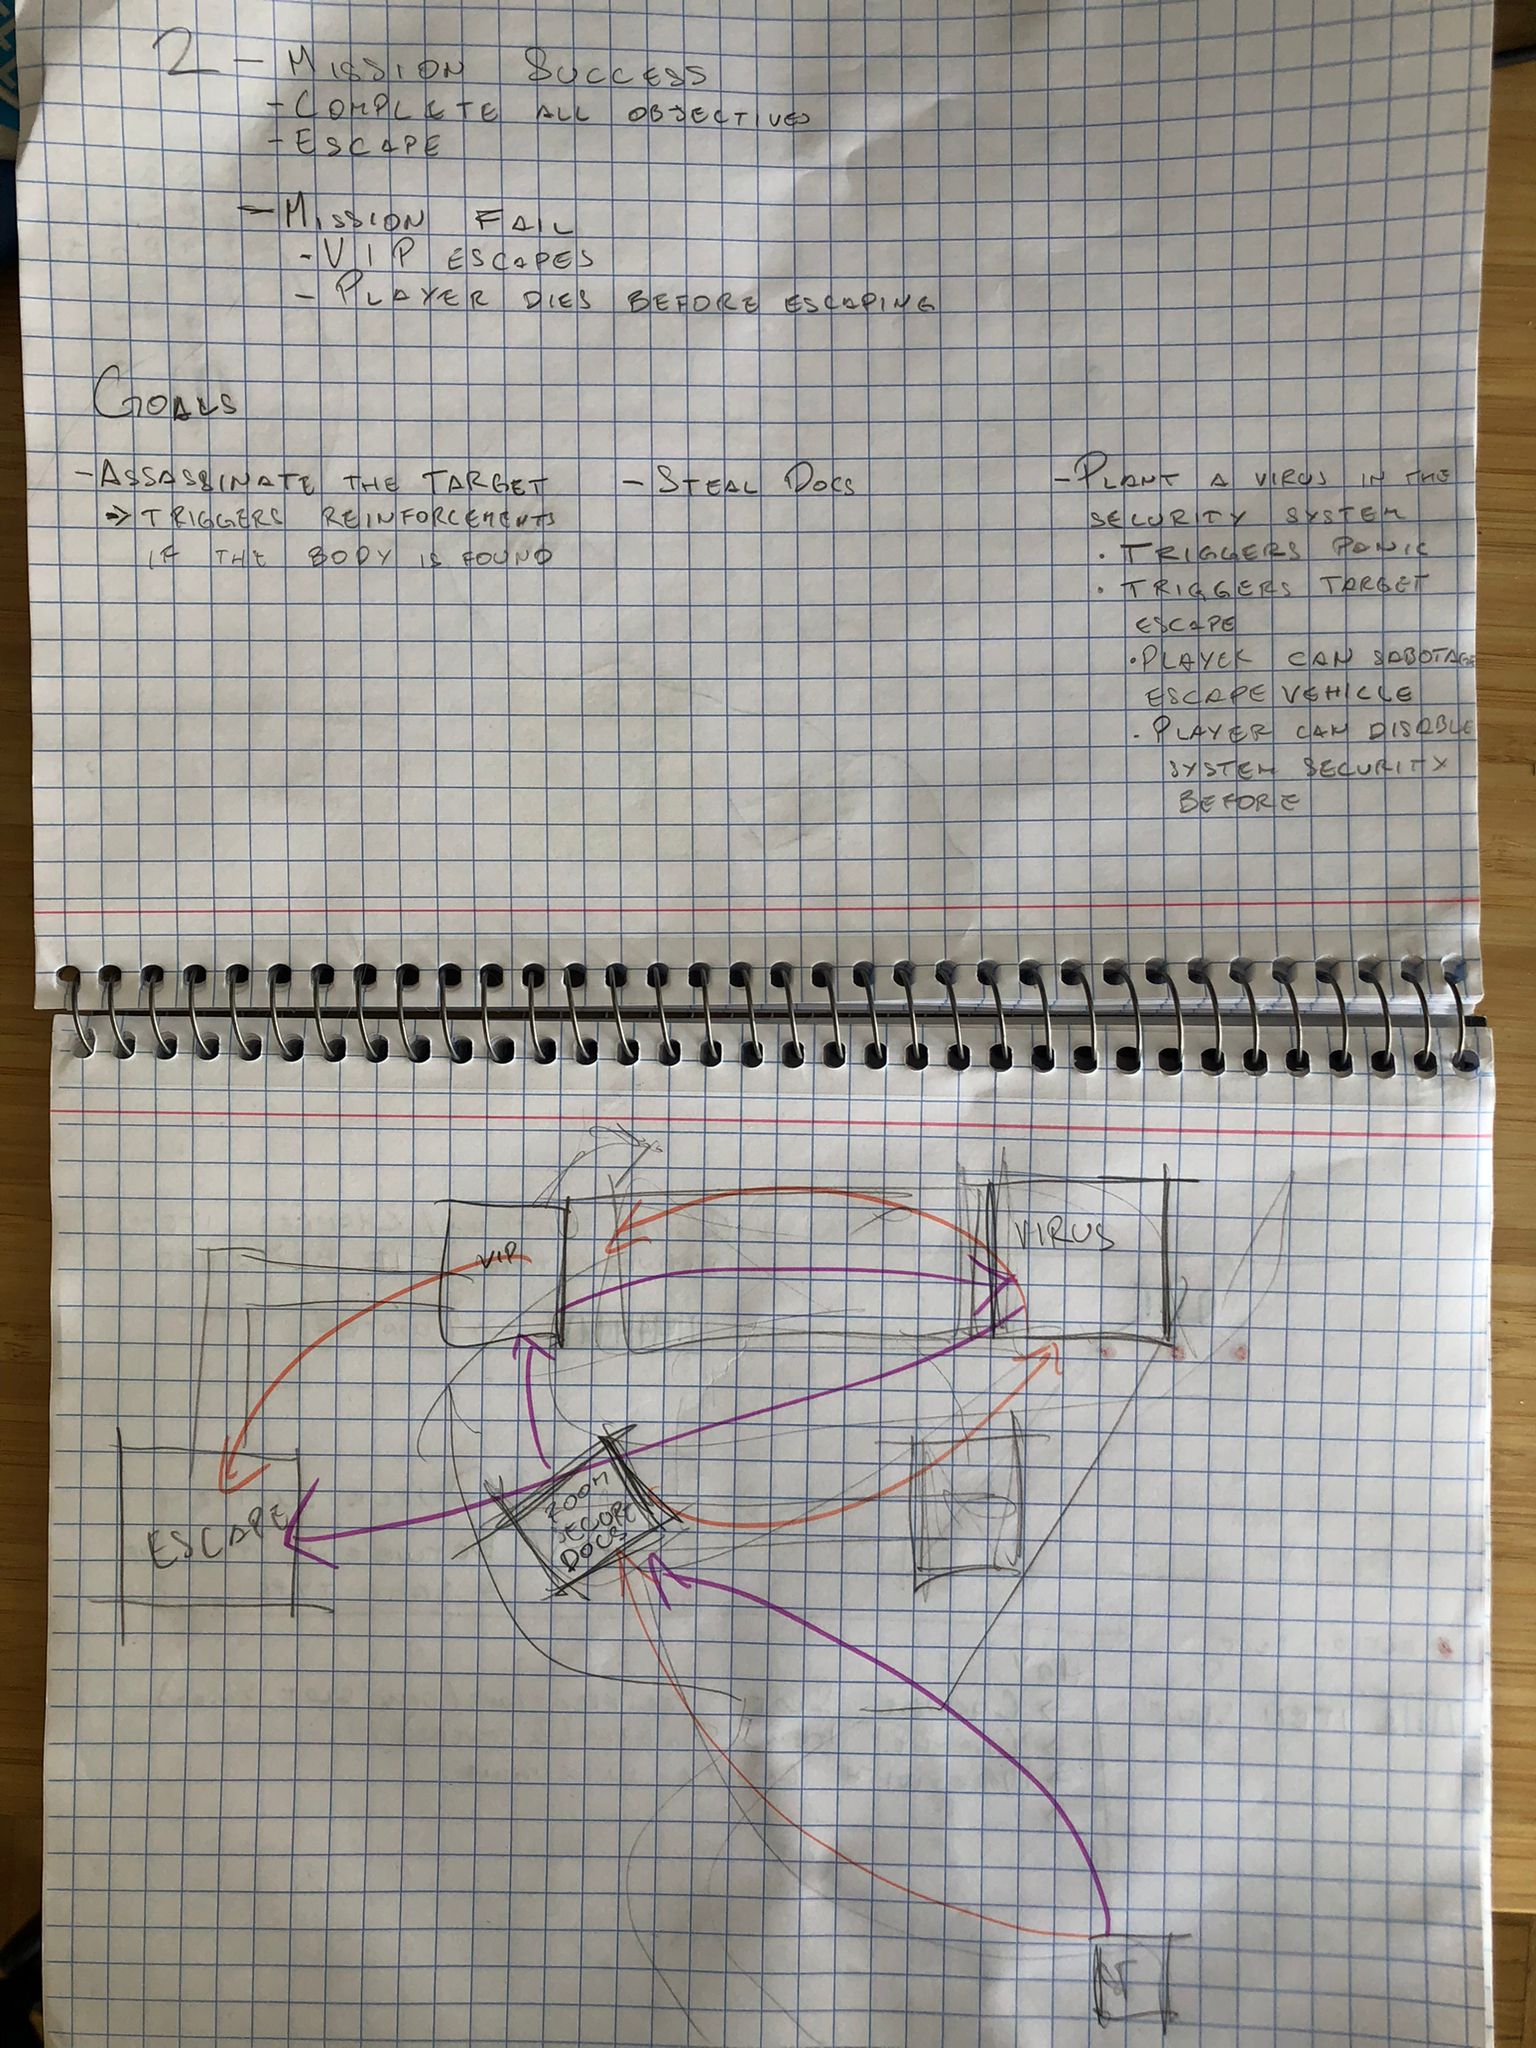 2 - MISSION SUCCESS
- COMPLETE ALL OBJECTIVES
- ESCAPE
- MISSION FAIL
- VIP ESCAPES
- PLAYER DIES BEFORE ESCAPING
GOALS
- ASSASSINATE THE TARGET
→ TRIGGERS REINFORCEMENTS
IF THE BODY IS FOUND
- STEAL DOCS
- PLANT A VIRUS IN THE
SECURITY SYSTEM
• TRIGGERS PANIC
• TRIGGERS TARGET
ESCAPE
• PLAYER CAN SABOTAGE
ESCAPE VEHICLE
• PLAYER CAN DISABLE
SYSTEM SECURITY
BEFORE
VIP
VIRUS
ESCAPE
ROOM
SECURE
DOCS